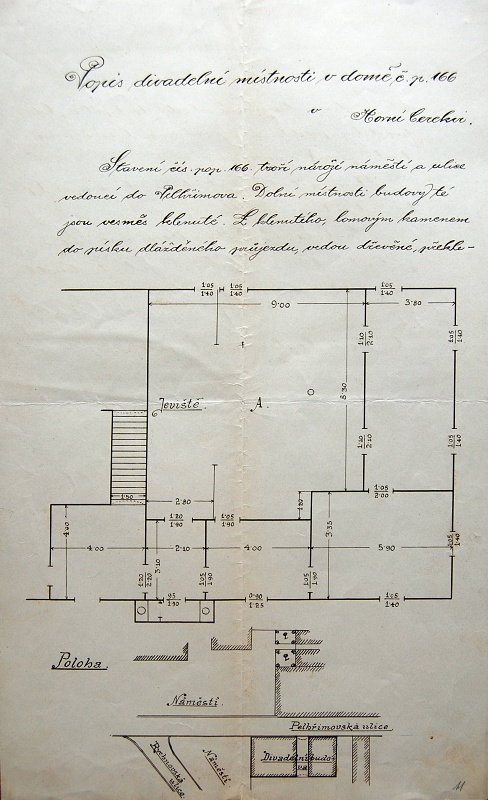 Popis divadelní místnosti v domě, č. p. 166
v Horní Cerekvi.
Stavení čís. pop. 166. tvoří nároží náměstí a ulice
vedoucí do Pelhřimova. Dolní místnosti budovy té
jsou vesměs klenuté. Z klenutého, lomovým kamenem
do písku dlážděného průjezdu, vedou dřevěné, překle-
1·05 1·05 1·05
1·40 1·40 1·40
9·00 3·80
1·10 2·10
1·05 1·40
8·30
Jeviště A.
1·10 2·10
1·05 1·40
1·50 2·80
1·05
2·00
1·20
1·20 1·05
1·90 1·90
4·00
3·35
4·00 2·10 4·00 5·90
3·10
1·40
1·20 2·20
1·05 1·90
1·05 1·90
95 0·90 1·05
1·90 1·25 1·40
Poloha.
Náměstí.
Pelhřimovská ulice
Náměstí
Divadelní budo-
va
11